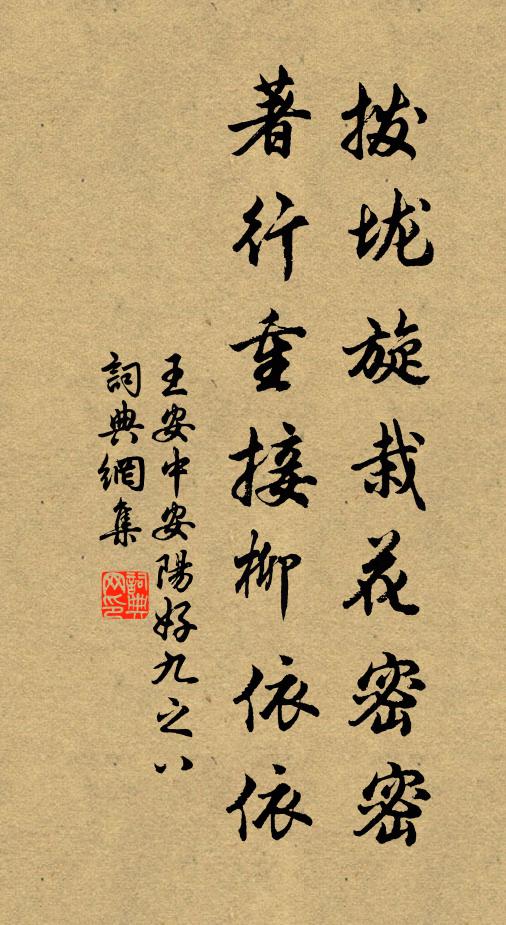 拨垅旋栽花密密
著行重接柳依依
王安中安陽好九之八
詞典網集
詞典网印